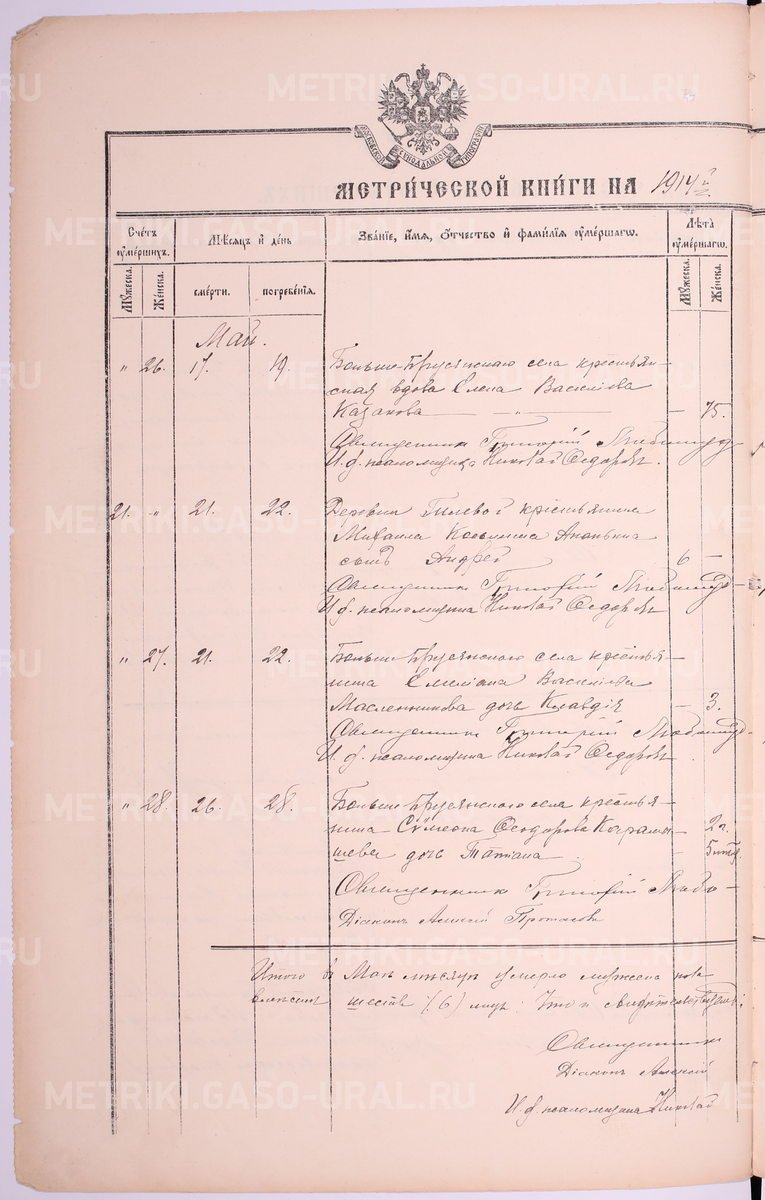 МОСКОВСКОЙ СѴНОДАЛЬНОЙ ТИПОГРАФІИ
МЕТРИ́ЧЕСКОЙ КНИ́ГИ НА 1914й
Сче́тъ оу҆ме́ршихъ.
Мѣ́сяцъ и҆ де́нь
Зва́ніе, и҆́мя, Ѻ҆́тчество и҆ фами́лія оу҆ме́ршагѡ.
Лѣ́та оу҆ме́ршагѡ.
Мꙋ́жеска.
Же́нска.
сме́рти.
погребе́нія.
Мꙋ́жеска.
Же́нска.
Май.
" 26. 17. 19. Больше-Брусянскаго села крестьян-
ская вдова Елена Васильева
Казакова — " — — 75.
Священникъ Григорій
И. д. псаломщика Николай Ѳедоровъ.
21. " 21. 22. Деревни Гилевой крестьянина
Михаила Косьмина Ананьина
сынъ Андрей 6 —
Священникъ Григорій
И. д. псаломщика Николай Ѳедоровъ
" 27. 21. 22. Больше-Брусянскаго села крестья-
нина Емеліана Васильева
Масленникова дочь Клавдія — 3.
Священникъ Григорій
И. д. псаломщика Николай Ѳедоровъ
" 28. 26. 28. Больше-Брусянскаго села крестья-
нина Сѵмеона Ѳеодорова Карама-
шева дочь Татіана — 2 г. 5 м.
Священникъ Григорій
Діаконъ Алексій Протасовъ
Итого въ Маѣ мѣсяцѣ умерло мужеска пола
шесть (6) лицъ: Что и свидѣтельствуемъ:
Священникъ
Діаконъ Алексій
И. д. псаломщика Николай
METRIKI.GASO-URAL.RU